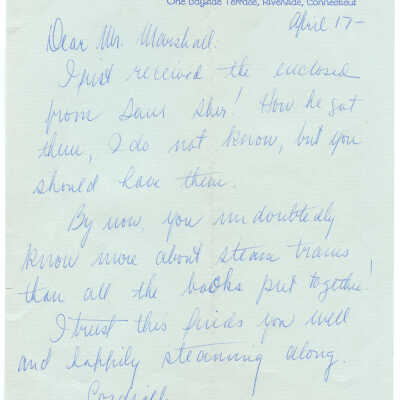 One Bayside Terrace, Riverside, Connecticut
April 17—
Dear Mr. Marshall:
I just received the enclosed
from
! How he got
them, I do not know, but you
should have them.
By now, you undoubtedly
know more about steam trains
than all the books put together!
I trust this finds you well
and happily steaming along.
Cordially